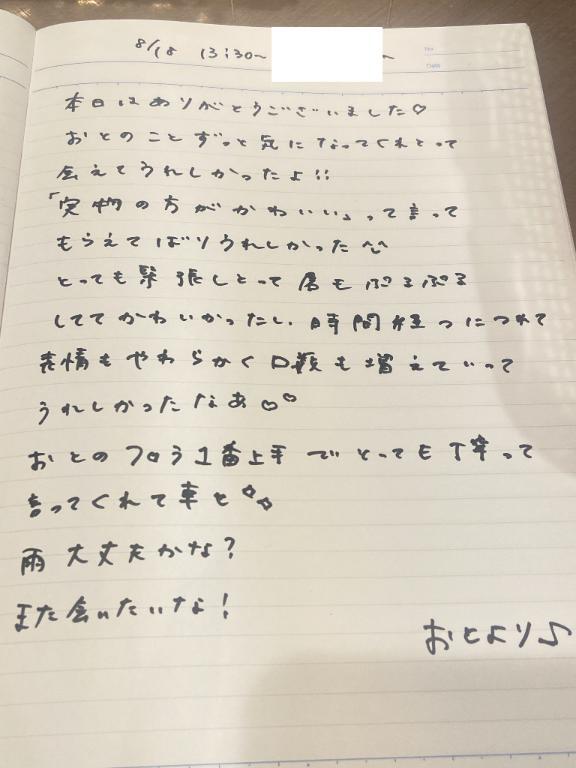 8/18 13:30~
No.
Date
本日はありがとうございました♡
おとのことずっと気になってくれとって
会えてうれしかったよ!!
「実物の方がかわいい」って言って
もらえてばりうれしかった^^
とっても緊張しとって 唇もぷるぷる
しててかわいかったし、時間経つにつれて
表情もやわらかく口数も増えていって
うれしかったなぁ♡♡
おとのフロう1番上手でとっても丁寧って
言ってくれて
雨大丈夫かな?
また会いたいな!
おとより♪